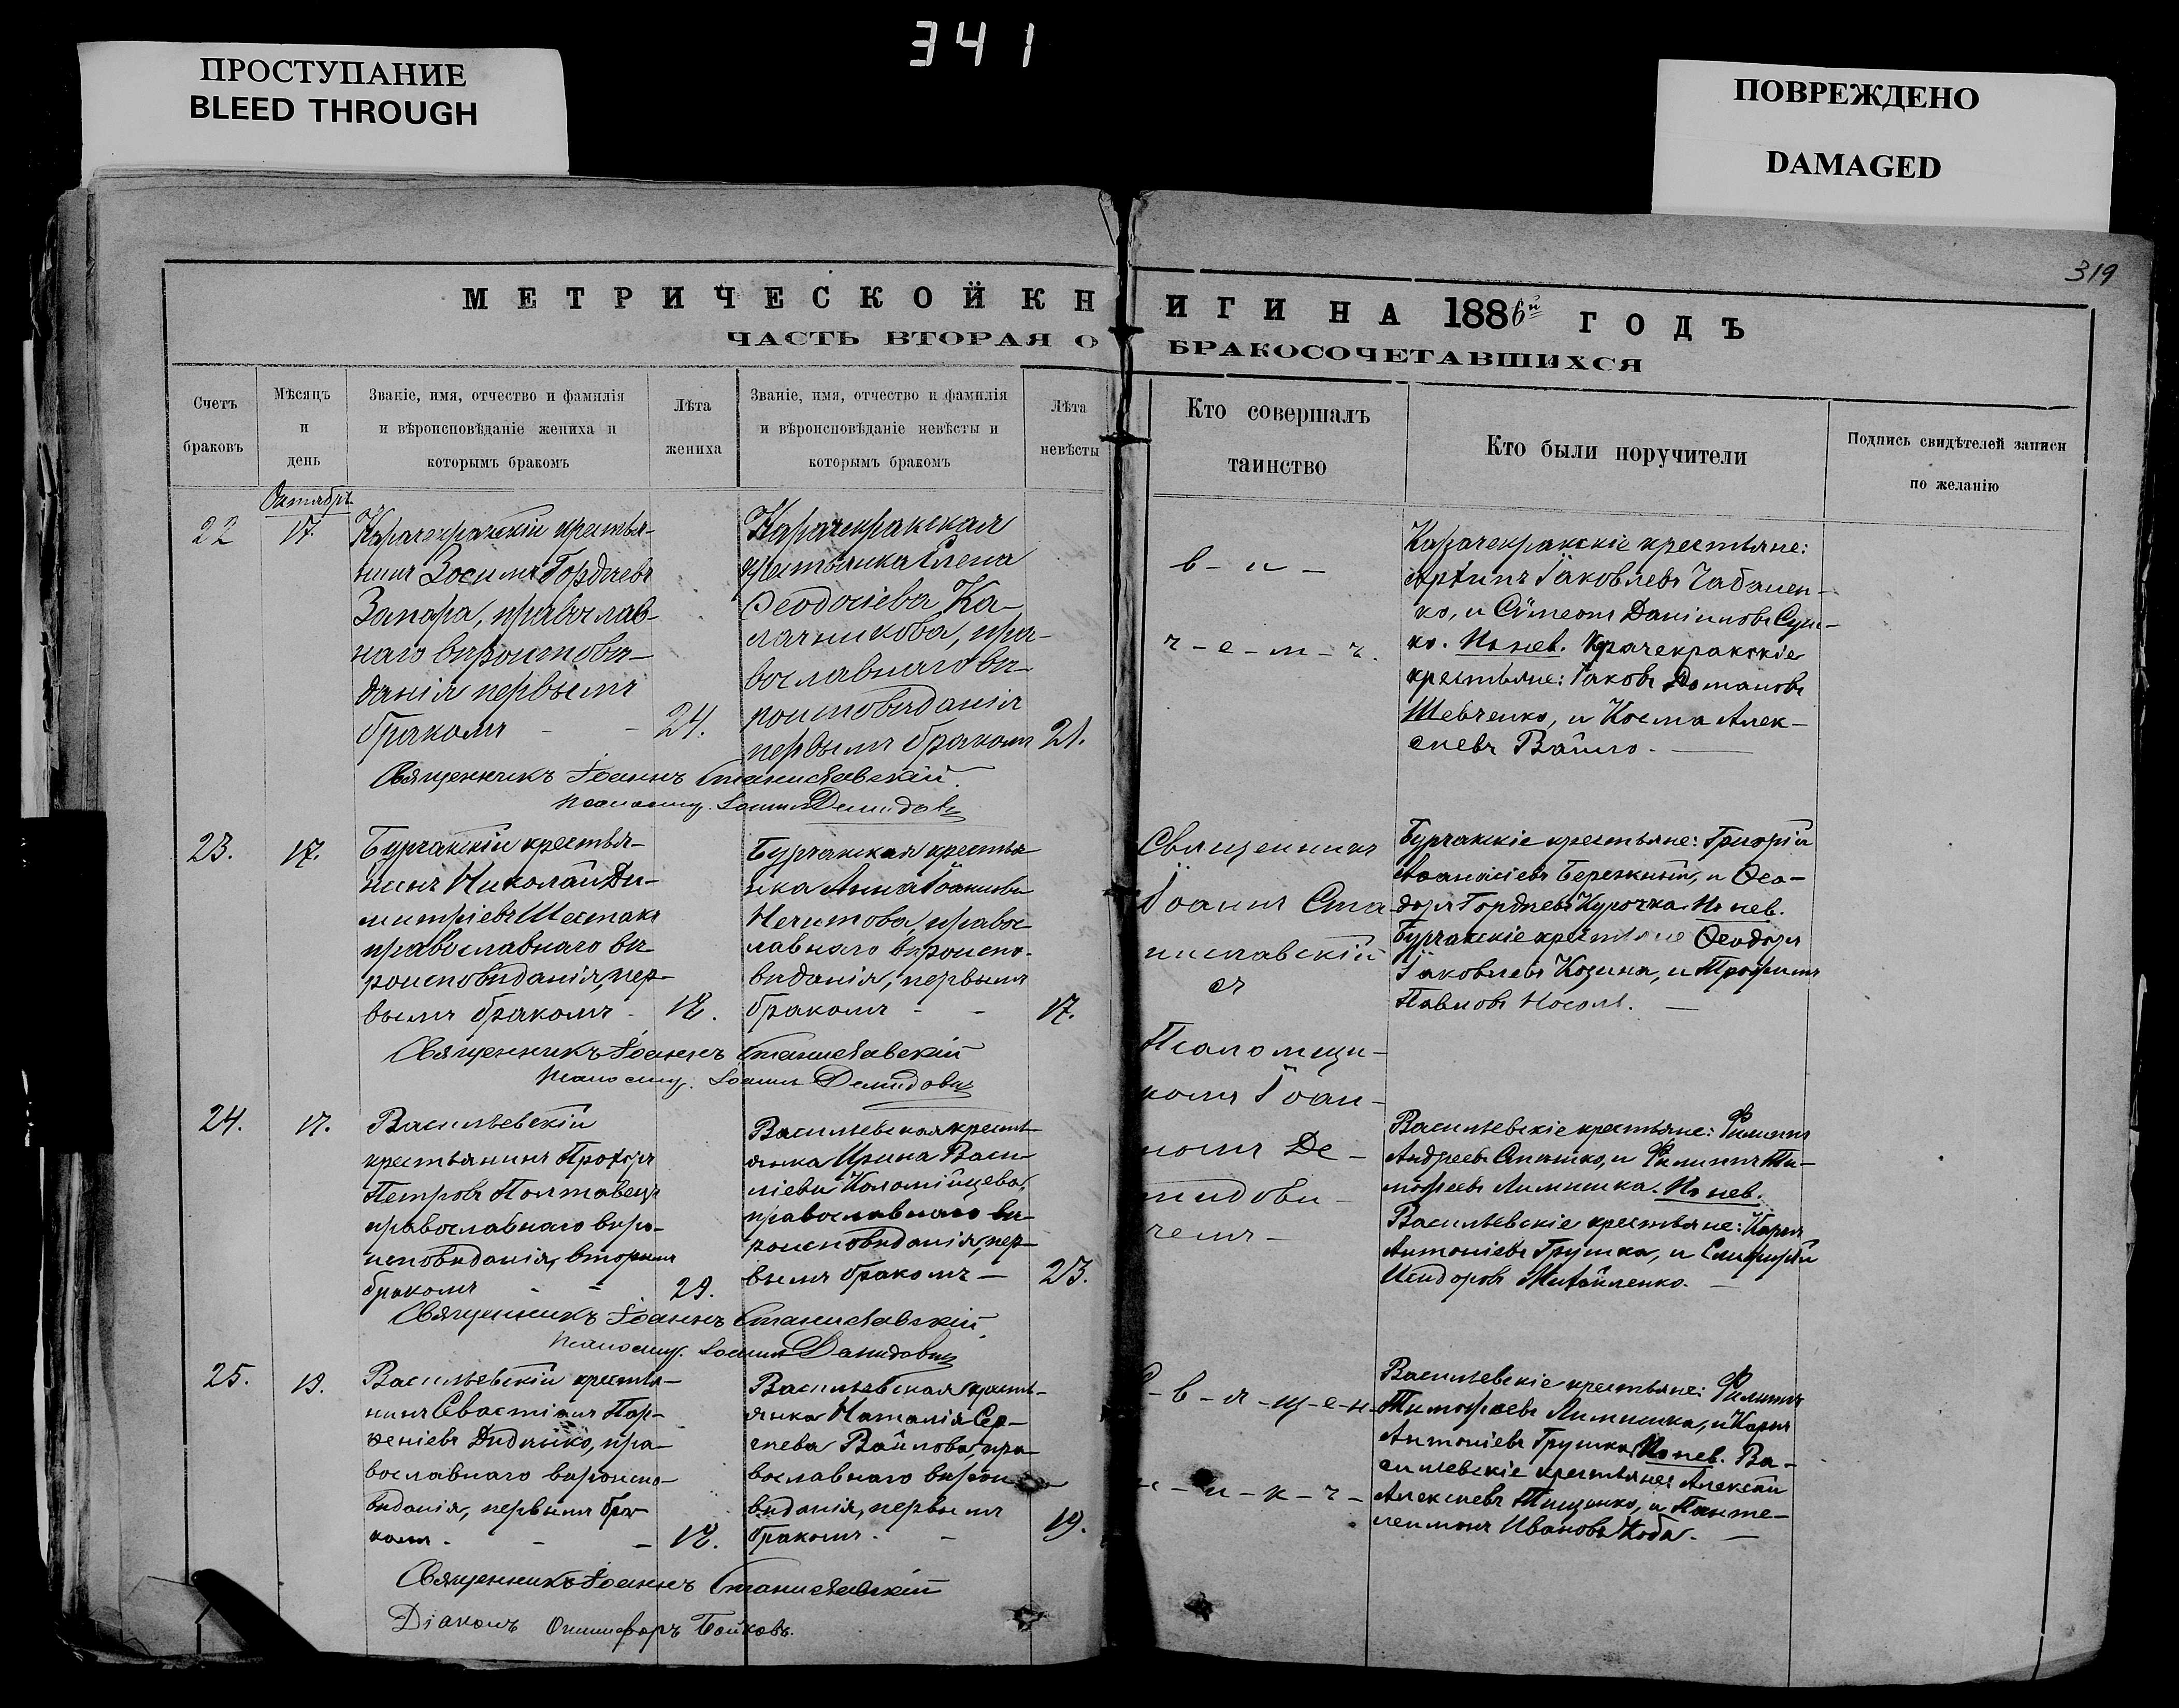 341
ПРОСТУПАНИЕ
BLEED THROUGH
ПОВРЕЖДЕНО
DAMAGED
319
МЕТРИЧЕСКОЙ КНИГИ НА 1886й ГОДЪ
ЧАСТЬ ВТОРАЯ О БРАКОСОЧЕТАВШИХСЯ
Счетъ
браковъ
Мѣсяцъ
и
день
Званіе, имя, отчество и фамилія
и вѣроисповѣданіе жениха и
которымъ бракомъ
Лѣта
жениха
Званіе, имя, отчество и фамилія
и вѣроисповѣданіе невѣсты и
которымъ бракомъ
Лѣта
невѣсты
Кто совершалъ
таинство
Кто были поручители
Подпись свидѣтелей записи
по желанію
Октябрь
22
17.
Карачекракскій крестья-
нинъ Зосима Гордѣевъ
Запара, православ-
наго вѣроисповѣ-
данія первымъ
бракомъ - - 24.
Карачекракская
крестьянка Елена
Ѳеодосіева Ка-
лачникова, пра-
вославнаго вѣ-
роисповѣданія
первымъ бракомъ 21.
в - и -
ч - е - м - ъ.
Карачекракскіе крестьяне:
Архипъ Іаковлевъ Чабанен-
ко, и Сѵмеонъ Даніиловъ Суш-
ко. По нев. Карачекракскіе
крестьяне: Іаковъ
Шевченко, и Косма Алек-
сѣевъ Вайло.
Священникъ Іоаннъ Станиславскій
псаломщ. Іоаннъ Демидовъ
23.
17.
Бурчакскій крестья-
нинъ Николай Ди-
митріевъ Шестакъ
православнаго вѣ-
роисповѣданія, пер-
вымъ бракомъ - 18.
Бурчакская крестья
нка Анна Іоаннова
Нечитова, правос
лавнаго вѣроиспо-
вѣданія, первымъ
бракомъ - - 17.
Священникъ
Іоаннъ Ста
ниславскій
съ
Псаломщи-
комъ Іоан-
номъ Де-
мидови-
чемъ -
Бурчакскіе крестьяне: Григорій
Аѳанасіевъ Бережный, и Ѳео-
доръ Гордѣевъ Курочка. По нев.
Бурчакскіе крестьяне Ѳеодоръ
Іаковлевъ Козина, и Трофимъ
Павловъ Носоль.
Священникъ Іоаннъ Станиславскій
псаломщ. Іоаннъ Демидовъ
24.
17.
Васильевскій
крестьянинъ Прохоръ
Петровъ Полтавецъ
православнаго вѣро-
исповѣданія, вторымъ
бракомъ - - 29.
Васильевская кресть-
янка Ирина Васи-
ліева Коломійцева,
православнаго вѣ-
роисповѣданія, пер-
вымъ бракомъ - 23.
Васильевскіе крестьяне: Филиппъ
Андреевъ и Филиппъ Ти-
моѳеевъ По нев.
Васильевскіе крестьяне: Карпъ
Антоніевъ Грушка, и
Исидоровъ Михайленко.
Священникъ Іоаннъ Станиславскій
псаломщ. Іоаннъ Демидовъ
25.
19.
Васильевскій крестья-
нинъ Севастіанъ Пар-
ѳеніевъ Дидычко, пра-
вославнаго вѣроиспо-
вѣданія, первымъ бра-
комъ - - 18.
Васильевская кресть-
янка Наталія Сер-
гѣева Вайлова, пра-
вославнаго вѣрои
вѣданія, первымъ
бракомъ - 19.
С - в - я - щ - е - н -
н - и - к - ъ -
Васильевскіе крестьяне: Филиппъ
Тимоѳеевъ и Карпъ
Антоніевъ Грушка. По нев. Ва-
сильевскіе крестьяне: Алексѣй
Алексѣевъ Тищенко, и Панте-
леимонъ Ивановъ Коба.
Священникъ Іоаннъ Станиславскій
Діаконъ Онисифоръ Бойковъ.